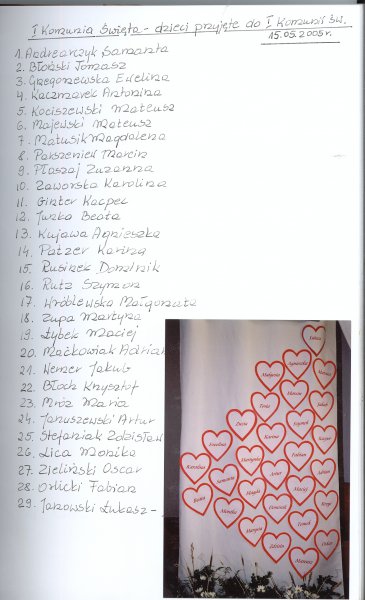 I Komunia Święta - dzieci przyjęte do I Komunii Św.
15.05.2005r.
1. Andrearczyk Samanta
2. Błoński Tomasz
3. Gregorzewska Ewelina
4. Kaczmarek Antonina
5. Kociszewski Mateusz
6. Majewski Mateusz
7. Matusik Magdalena
8. Parszeniek Marcin
9. Płaszaj Zuzanna
10. Zaworska Karolina
11. Ginter Kacper
12. Jurko Beata
13. Kujawa Agnieszka
14. Patzer Karina
15. Rusinek Dominik
16. Rutz Szymon
17. Wróblewska Małgorzata
18. Zupa Martyna
19. Łybek Maciej
20. Maćkowiak Adrian
21. Werner Jakub
22. Błoch Krzysztof
23. Mróz Maria
24. Januszewski Artur
25. Stefaniak Zdzisław
26. Lica Monika
27. Zieliński Oscar
28. Orlicki Fabian
29. Janowski Łukasz -
Łukasz
Agnieszka
Mateusz
Małgosia
Marcin
Jakub
Tosia
Szymon
Zuzia
Kacper
Karina
Ewelina
Fabian
Martynka
Adrian
Karolina
Artur
Samanta
Maciej
Magda
Beata
Dominik
Monika
Tomek
Marysia
Oskar
Zdzisiu
Mateusz